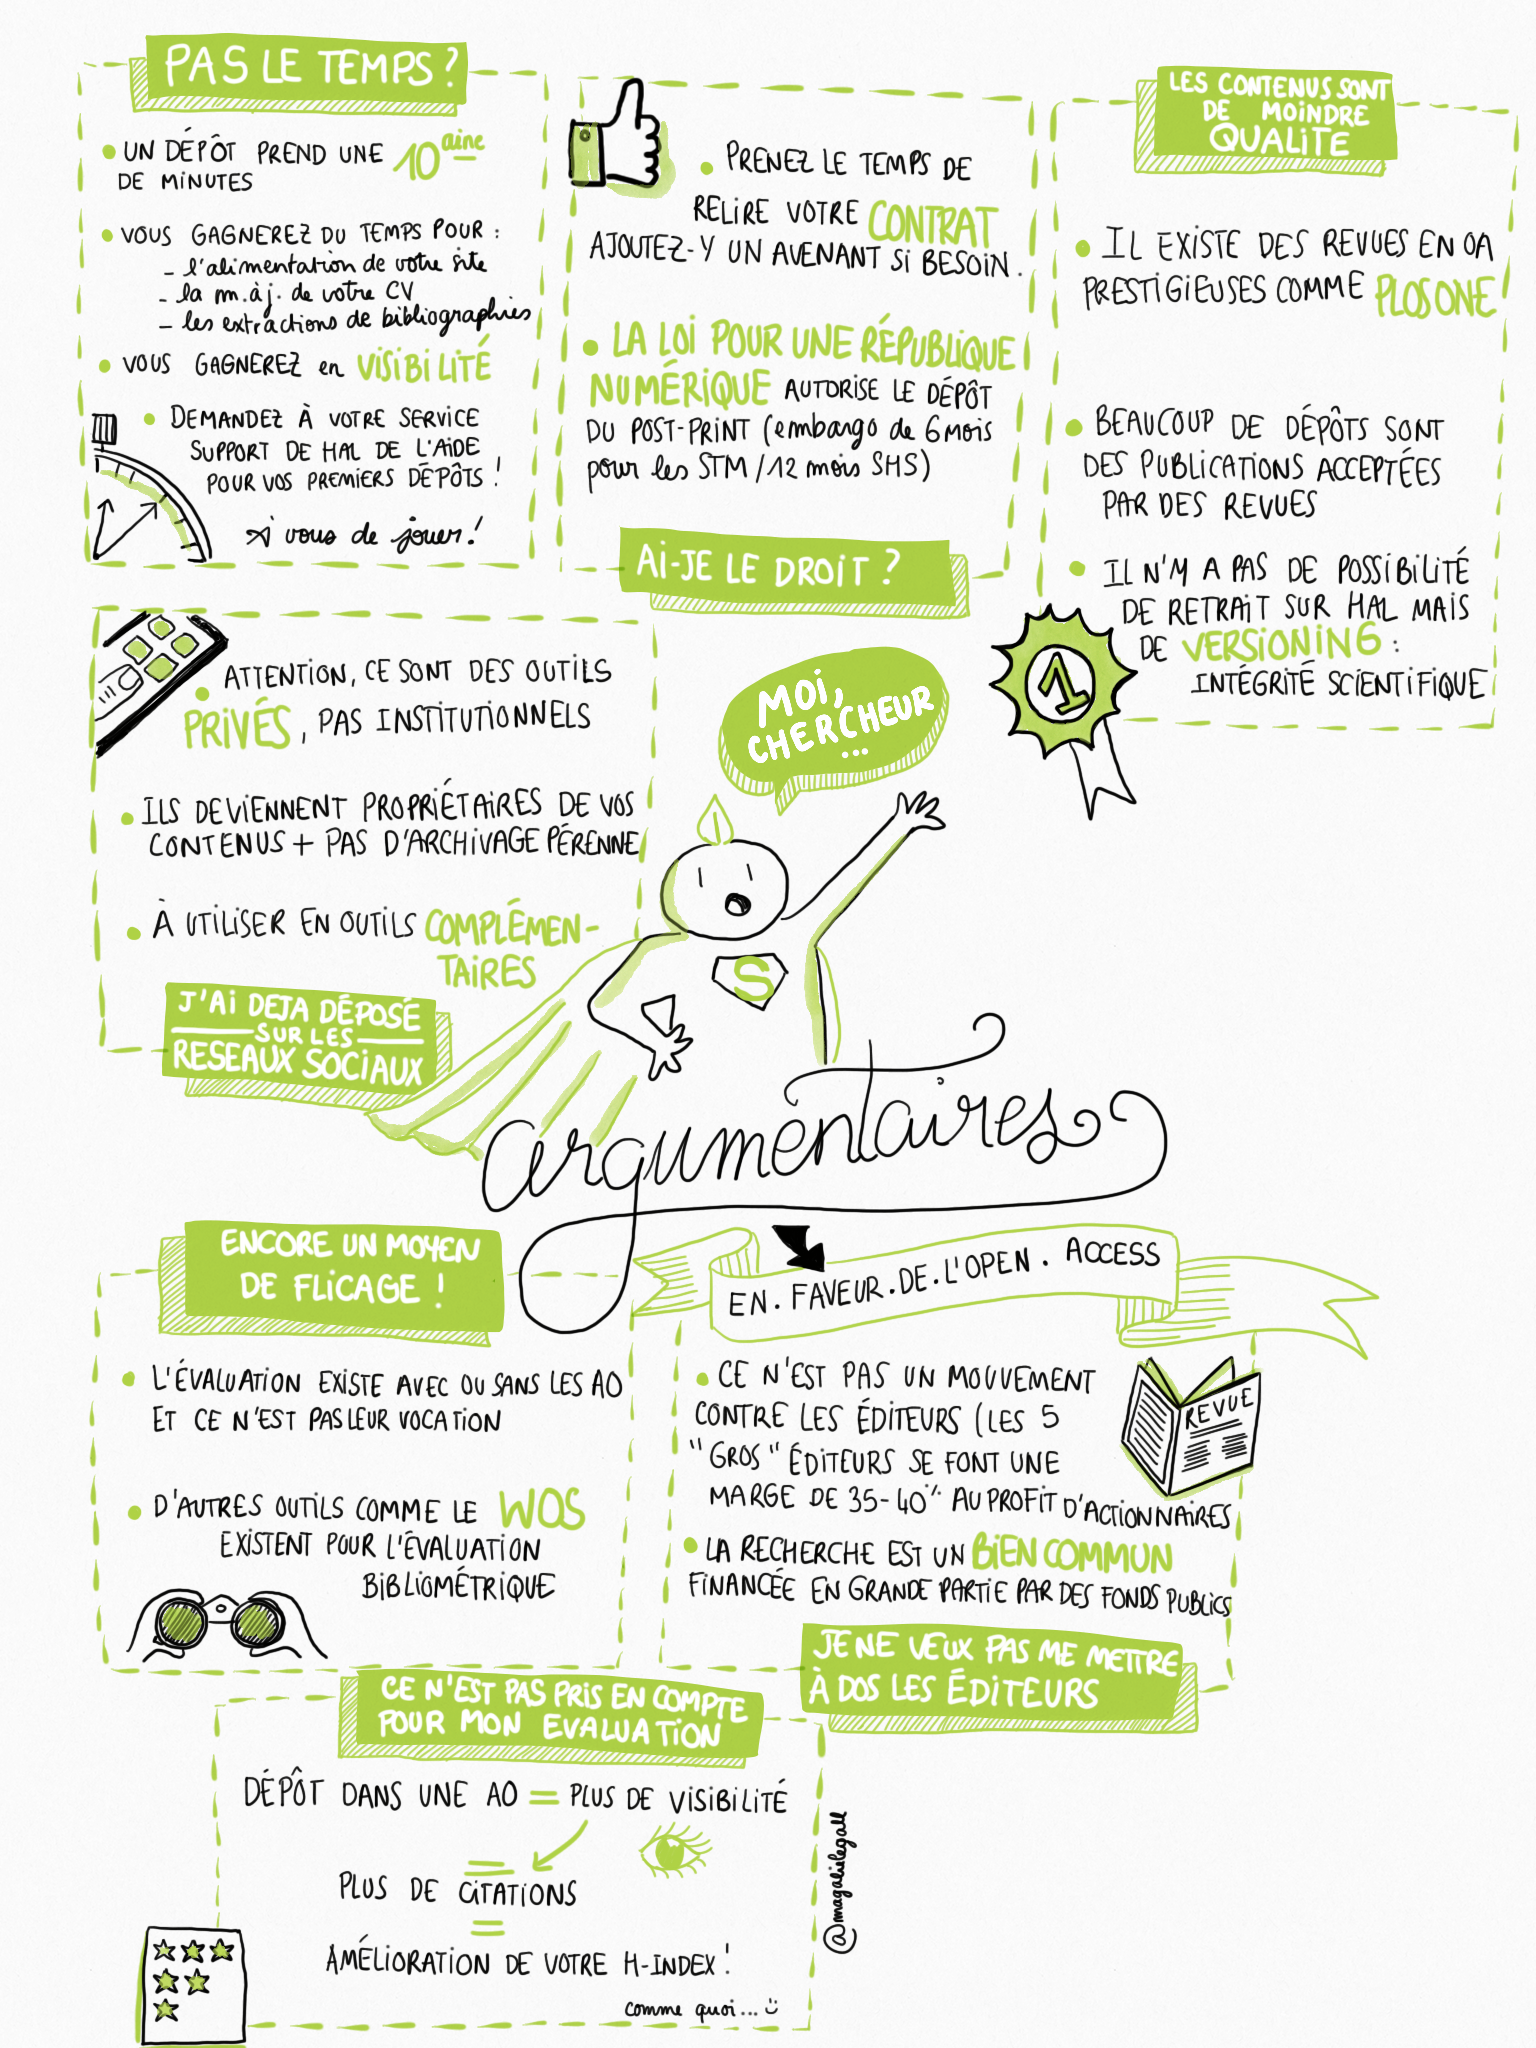 PAS LE TEMPS ?
UN DÉPÔT PREND UNE 10aine
DE MINUTES
VOUS GAGNEREZ DU TEMPS POUR :
- l'alimentation de votre site
- la m.àj. de votre CV
- les extractions de bibliographies
VOUS GAGNEREZ en VISIBILITÉ
DEMANDEZ À VOTRE SERVICE
SUPPORT DE HAL DE L'AIDE
POUR VOS PREMIERS DÉPÔTS !
À vous de jouer !
PRENEZ LE TEMPS DE
RELIRE VOTRE CONTRAT
AJOUTEZ-Y UN AVENANT SI BESOIN.
LA LOI POUR UNE RÉPUBLIQUE
NUMÉRIQUE AUTORISE LE DÉPÔT
DU POST-PRINT (embargo de 6 mois
pour les STM / 12 mois SHS)
AI-JE LE DROIT ?
LES CONTENUS SONT
DE MOINDRE
QUALITE
IL EXISTE DES REVUES EN OA
PRESTIGIEUSES COMME PLOSONE
BEAUCOUP DE DÉPÔTS SONT
DES PUBLICATIONS ACCEPTÉES
PAR DES REVUES
IL N'Y A PAS DE POSSIBILITÉ
DE RETRAIT SUR HAL MAIS
DE VERSIONING :
INTÉGRITÉ SCIENTIFIQUE
1
ATTENTION, CE SONT DES OUTILS
PRIVÉS, PAS INSTITUTIONNELS
ILS DEVIENNENT PROPRIÉTAIRES DE VOS
CONTENUS + PAS D'ARCHIVAGE PÉRENNE
À UTILISER EN OUTILS COMPLÉMEN-
TAIRES
J'AI DEJA DÉPOSÉ
SUR LES
RESEAUX SOCIAUX
MOI,
CHERCHEUR
...
S
argumentaires
EN. FAVEUR. DE. L'OPEN. ACCESS
ENCORE UN MOYEN
DE FLICAGE !
L'ÉVALUATION EXISTE AVEC OU SANS LES AO
ET CE N'EST PAS LEUR VOCATION
D'AUTRES OUTILS COMME LE WOS
EXISTENT POUR L'ÉVALUATION
BIBLIOMÉTRIQUE
CE N'EST PAS UN MOUVEMENT
CONTRE LES ÉDITEURS (LES 5
"GROS" ÉDITEURS SE FONT UNE
MARGE DE 35-40% AU PROFIT D'ACTIONNAIRES
REVUE
LA RECHERCHE EST UN BIEN COMMUN
FINANCÉE EN GRANDE PARTIE PAR DES FONDS PUBLICS
JE NE VEUX PAS ME METTRE
À DOS LES ÉDITEURS
CE N'EST PAS PRIS EN COMPTE
POUR MON EVALUATION
DÉPÔT DANS UNE AO = PLUS DE VISIBILITÉ
=
PLUS DE CITATIONS
=
AMÉLIORATION DE VOTRE H-INDEX !
comme quoi...
@magalielegall